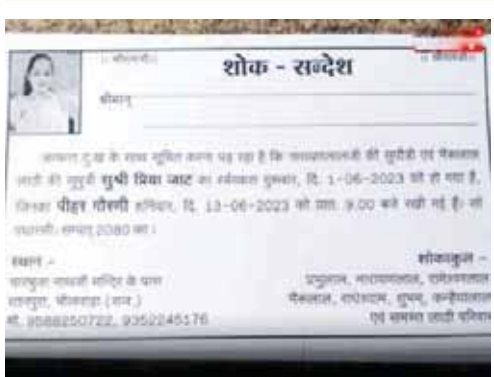 शोक - सन्देश
श्रीमान्
अत्यन्त दुःख के साथ सूचित करना पड़ रहा है कि की सुपौत्री एवं भैरूलाल
लाठी की सुपुत्री सुश्री प्रिया जाट का स्वर्गवास गुरूवार, दि. 1-06-2023 को हो गया है,
जिनका पीहर गौरणी शनिवार, दि. 13-06-2023 को प्रातः 9.00 बजे रखी गई है। सो
पधारसी। सम्वत् 2080 का।
स्थान –
शोकाकुल –
चारभुजा नाथजी मन्दिर के पास
रतनपुरा, भीलवाड़ा (राज.)
मो. 9588250722, 9352245176
प्रभुलाल, नारायणलाल, रामेश्वरलाल
भैरूलाल, राधेश्याम, शुभम्, कन्हैयालाल
एवं समस्त लाठी परिवार